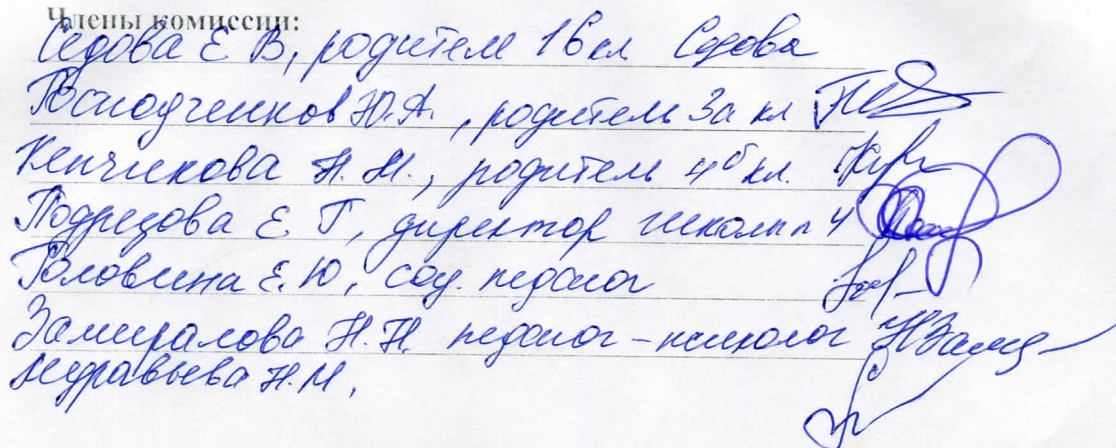 Члены комиссии:
Седова Е В, родитель 1б кл Седова
Господченков Ю.А., родитель 3а кл
Кенчикова Н. Н., родитель 4б кл.
Подрезова Е. Г, директор школы 4
Головина Е. Ю, соц. педагог
Замиралова Н. Н. педагог - психолог НЗами
Муравьева Н. М.